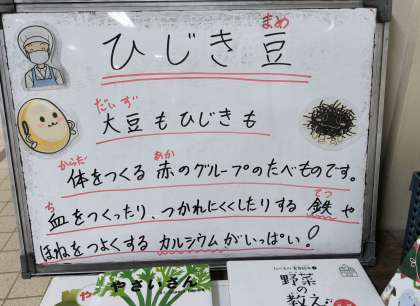 まめ
ひじき豆
だいず
大豆もひじきも
からだ あか
体をつくる 赤のグループのたべものです。
ち てつ
血をつくったり、つかれにくくしたりする 鉄や
ほねをつよくする カルシウムがいっぱい!
やさいさん
野菜
の教え